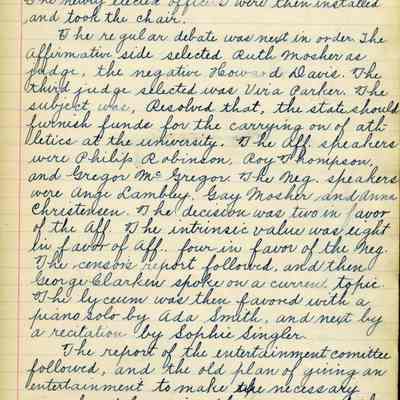 The newly elected officers were then installed
and took the chair.
The regular debate was next in order. The
Affirmative side selected Ruth Mosher as
judge, the negative Howard Davis. The
third judge selected was Vera Parker. The
subject was, Resolved that, the state should
furnish funds for the carrying on of ath-
letics at the university. The Aff. speakers
were Philip Robinson, Roy Thompson,
and Gregor McGregor. The Neg. speakers
were Ange Lambley, Gay Mosher and Anna
Christensen. The decision was two in favor
of the Aff. The intrinsic value was eight
in favor of Aff.. four in favor of the Neg.
The censors report followed, and then
George Clarken spoke on a current topic.
The lyceum was then favord with a
piano solo by Ada Smith, and next by
a recitation by Sophie Singler.
The report of the entertainment comittee
followed, and the old plan of giving an
entertainment to make the necessary